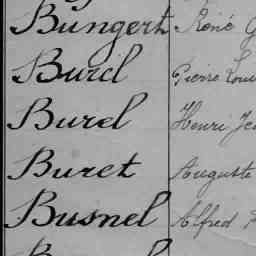 Bungert René G
Burel Pierre Loui
Burel Henri Je
Buret Auguste
Busnel Alfred